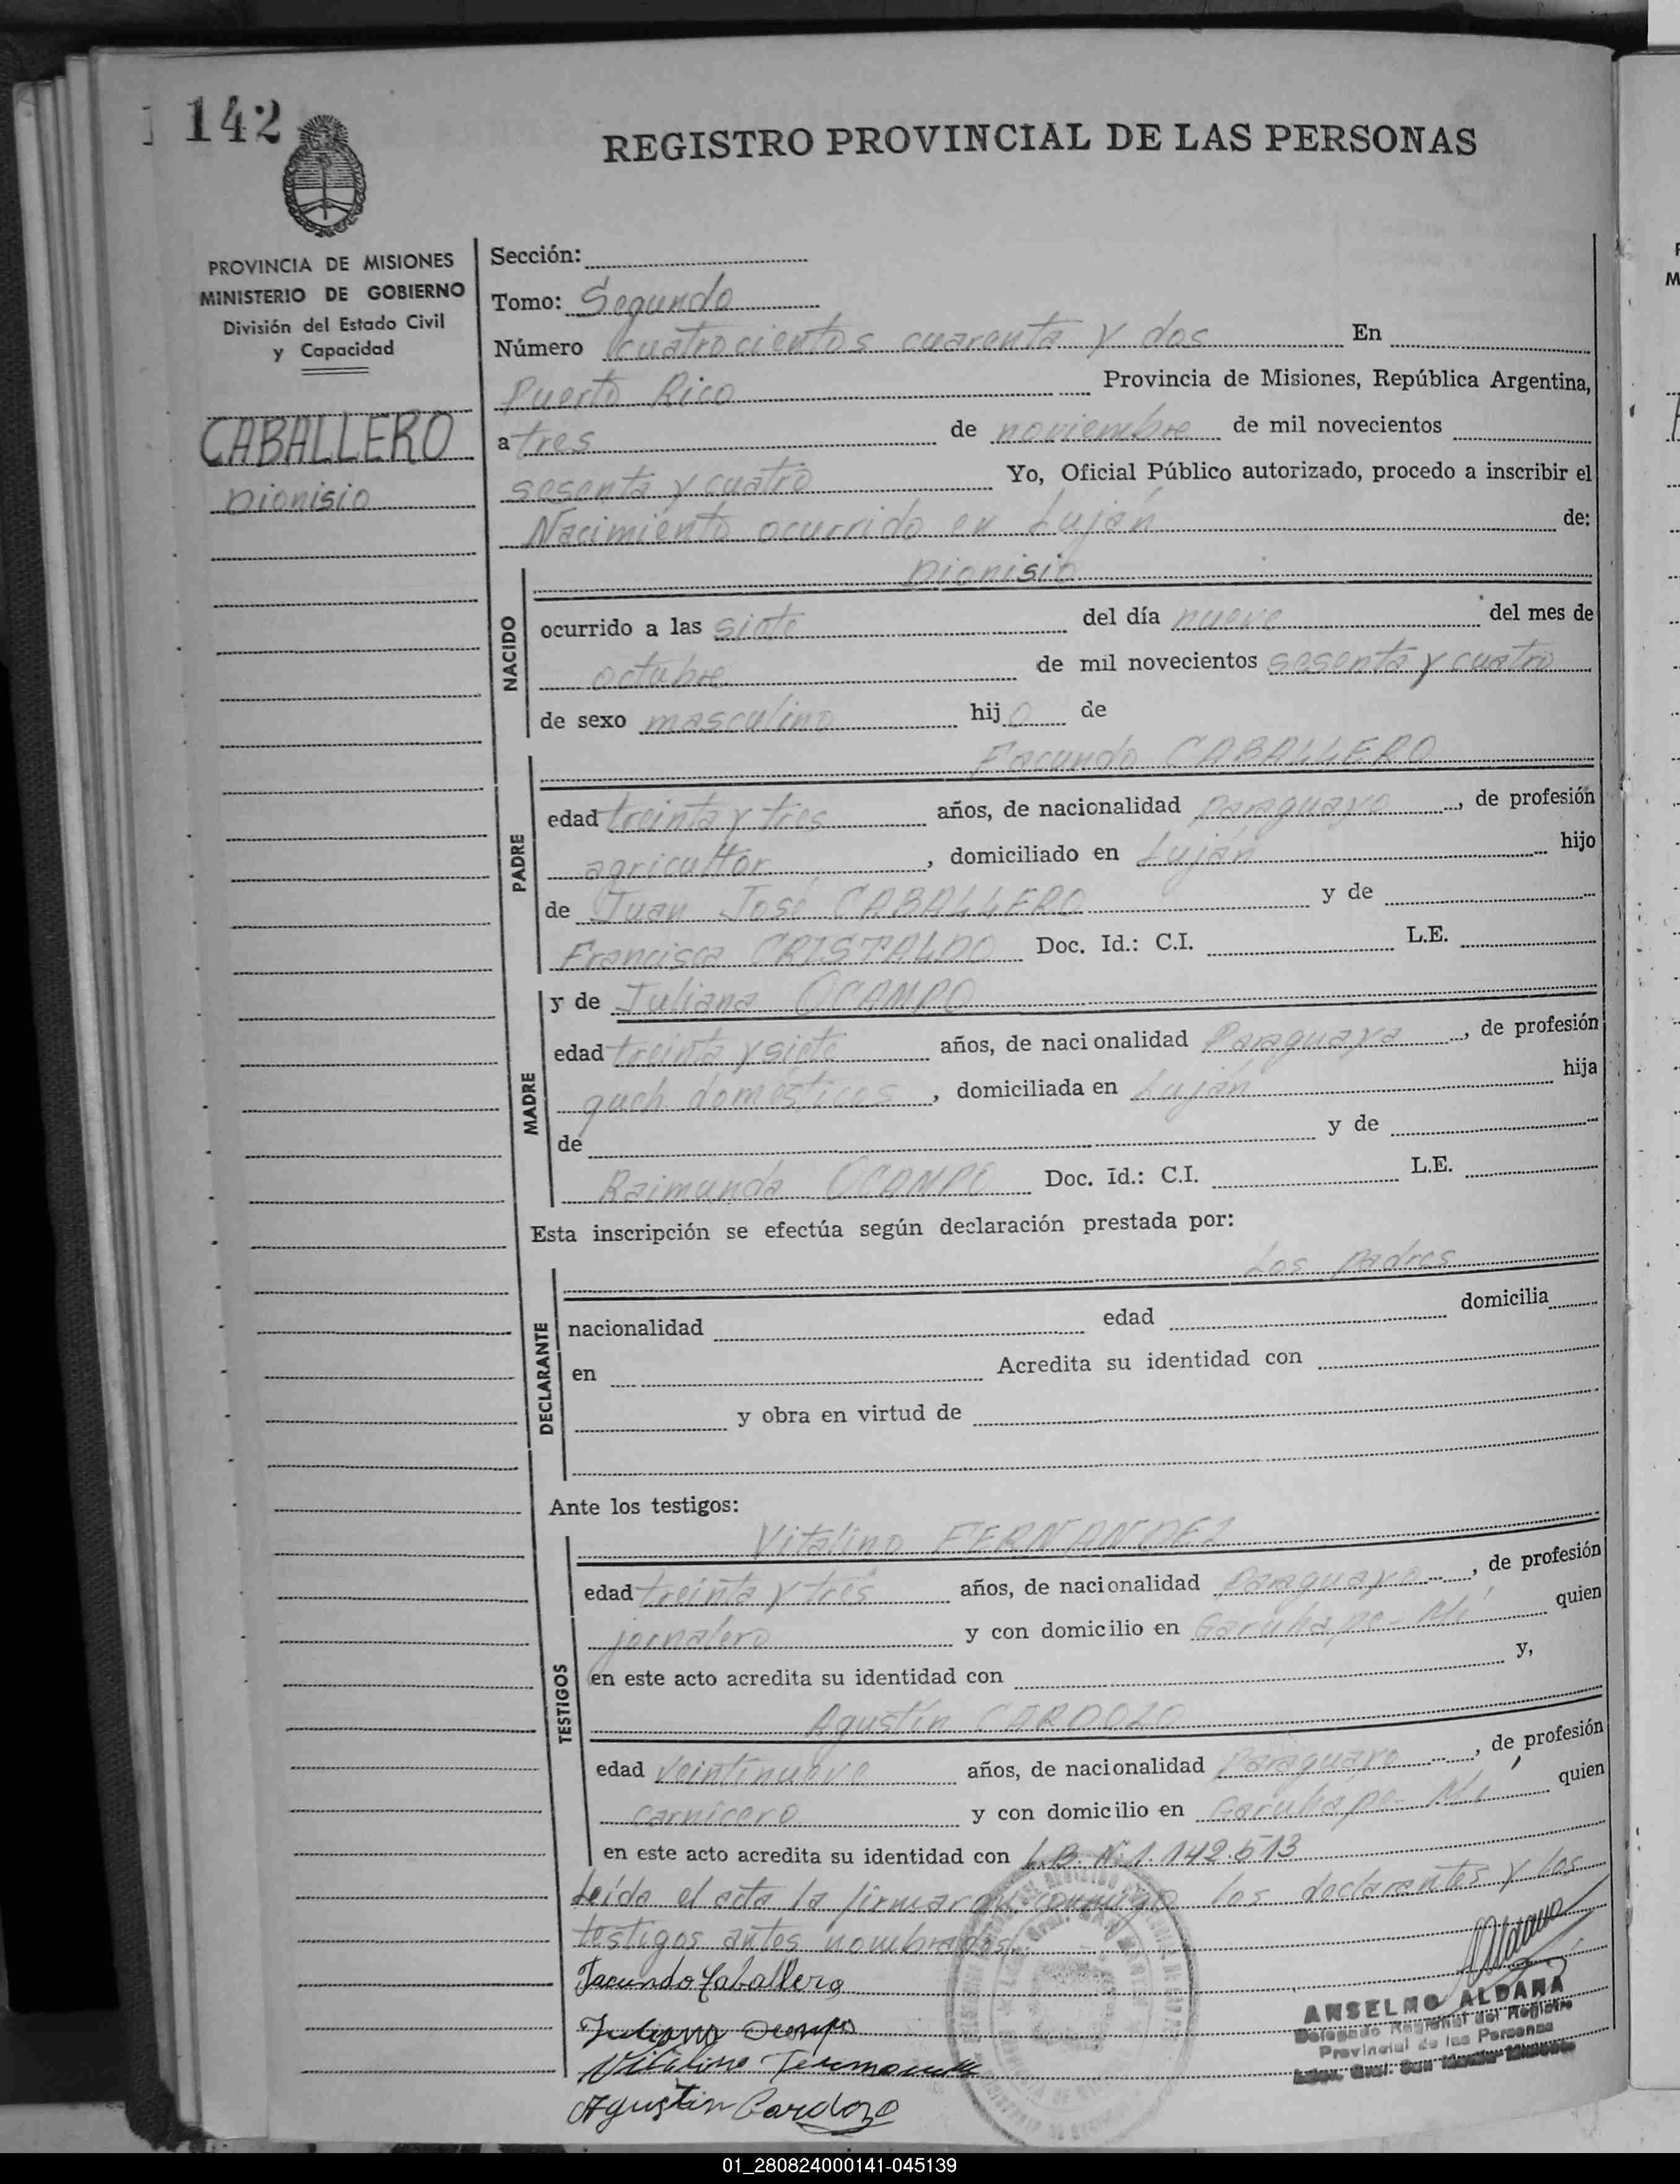 142
REGISTRO PROVINCIAL DE LAS PERSONAS
PROVINCIA DE MISIONES
MINISTERIO DE GOBIERNO
División del Estado Civil
y Capacidad
CABALLERO
Dionisio
Sección:
Tomo: Segundo
Número cuatrocientos cuarenta y dos En
Puerto Rico Provincia de Misiones, República Argentina,
a tres de noviembre de mil novecientos
sesenta y cuatro Yo, Oficial Público autorizado, procedo a inscribir el
Nacimiento ocurrido en Luján de:
NACIDO
Dionisio
ocurrido a las siete del día nueve del mes de
octubre de mil novecientos sesenta y cuatro
de sexo masculino hijo de
PADRE
Facundo CABALLERO
edad treinta y tres años, de nacionalidad paraguayo, de profesión
agricultor, domiciliado en Luján hijo
de Juan José CABALLERO y de
Francisca CRISTALDO Doc. Id.: C.I. L.E.
MADRE
y de Juliana OCAMPO
edad treinta y siete años, de nacionalidad Paraguaya, de profesión
queh. domésticos, domiciliada en Luján hija
de y de
Raimunda OCAMPO Doc. Id.: C.I. L.E.
Esta inscripción se efectúa según declaración prestada por:
DECLARANTE
Los padres
nacionalidad edad domicilia
en Acredita su identidad con
y obra en virtud de
Ante los testigos:
TESTIGOS
Vitalino FERNANDEZ
edad treinta y tres años, de nacionalidad Paraguayo, de profesión
jornalero y con domicilio en Garuhape-Mí quien
en este acto acredita su identidad con y,
Agustín CARDOZO
edad veintinueve años, de nacionalidad Paraguayo, de profesión
carnicero y con domicilio en Garuhape-Mí quien
en este acto acredita su identidad con L.B. Nº 1.142.513
Leída el acta la firmaron conmigo los declarantes y los
testigos antes nombrados.
Facundo Caballero
Juliana Ocampo
Vitalino Fernandez
Agustin Cardozo
Aldana
ANSELMO ALDANA
Delegado Regional del Registro
Provincial de las Personas
01_280824000141-045139